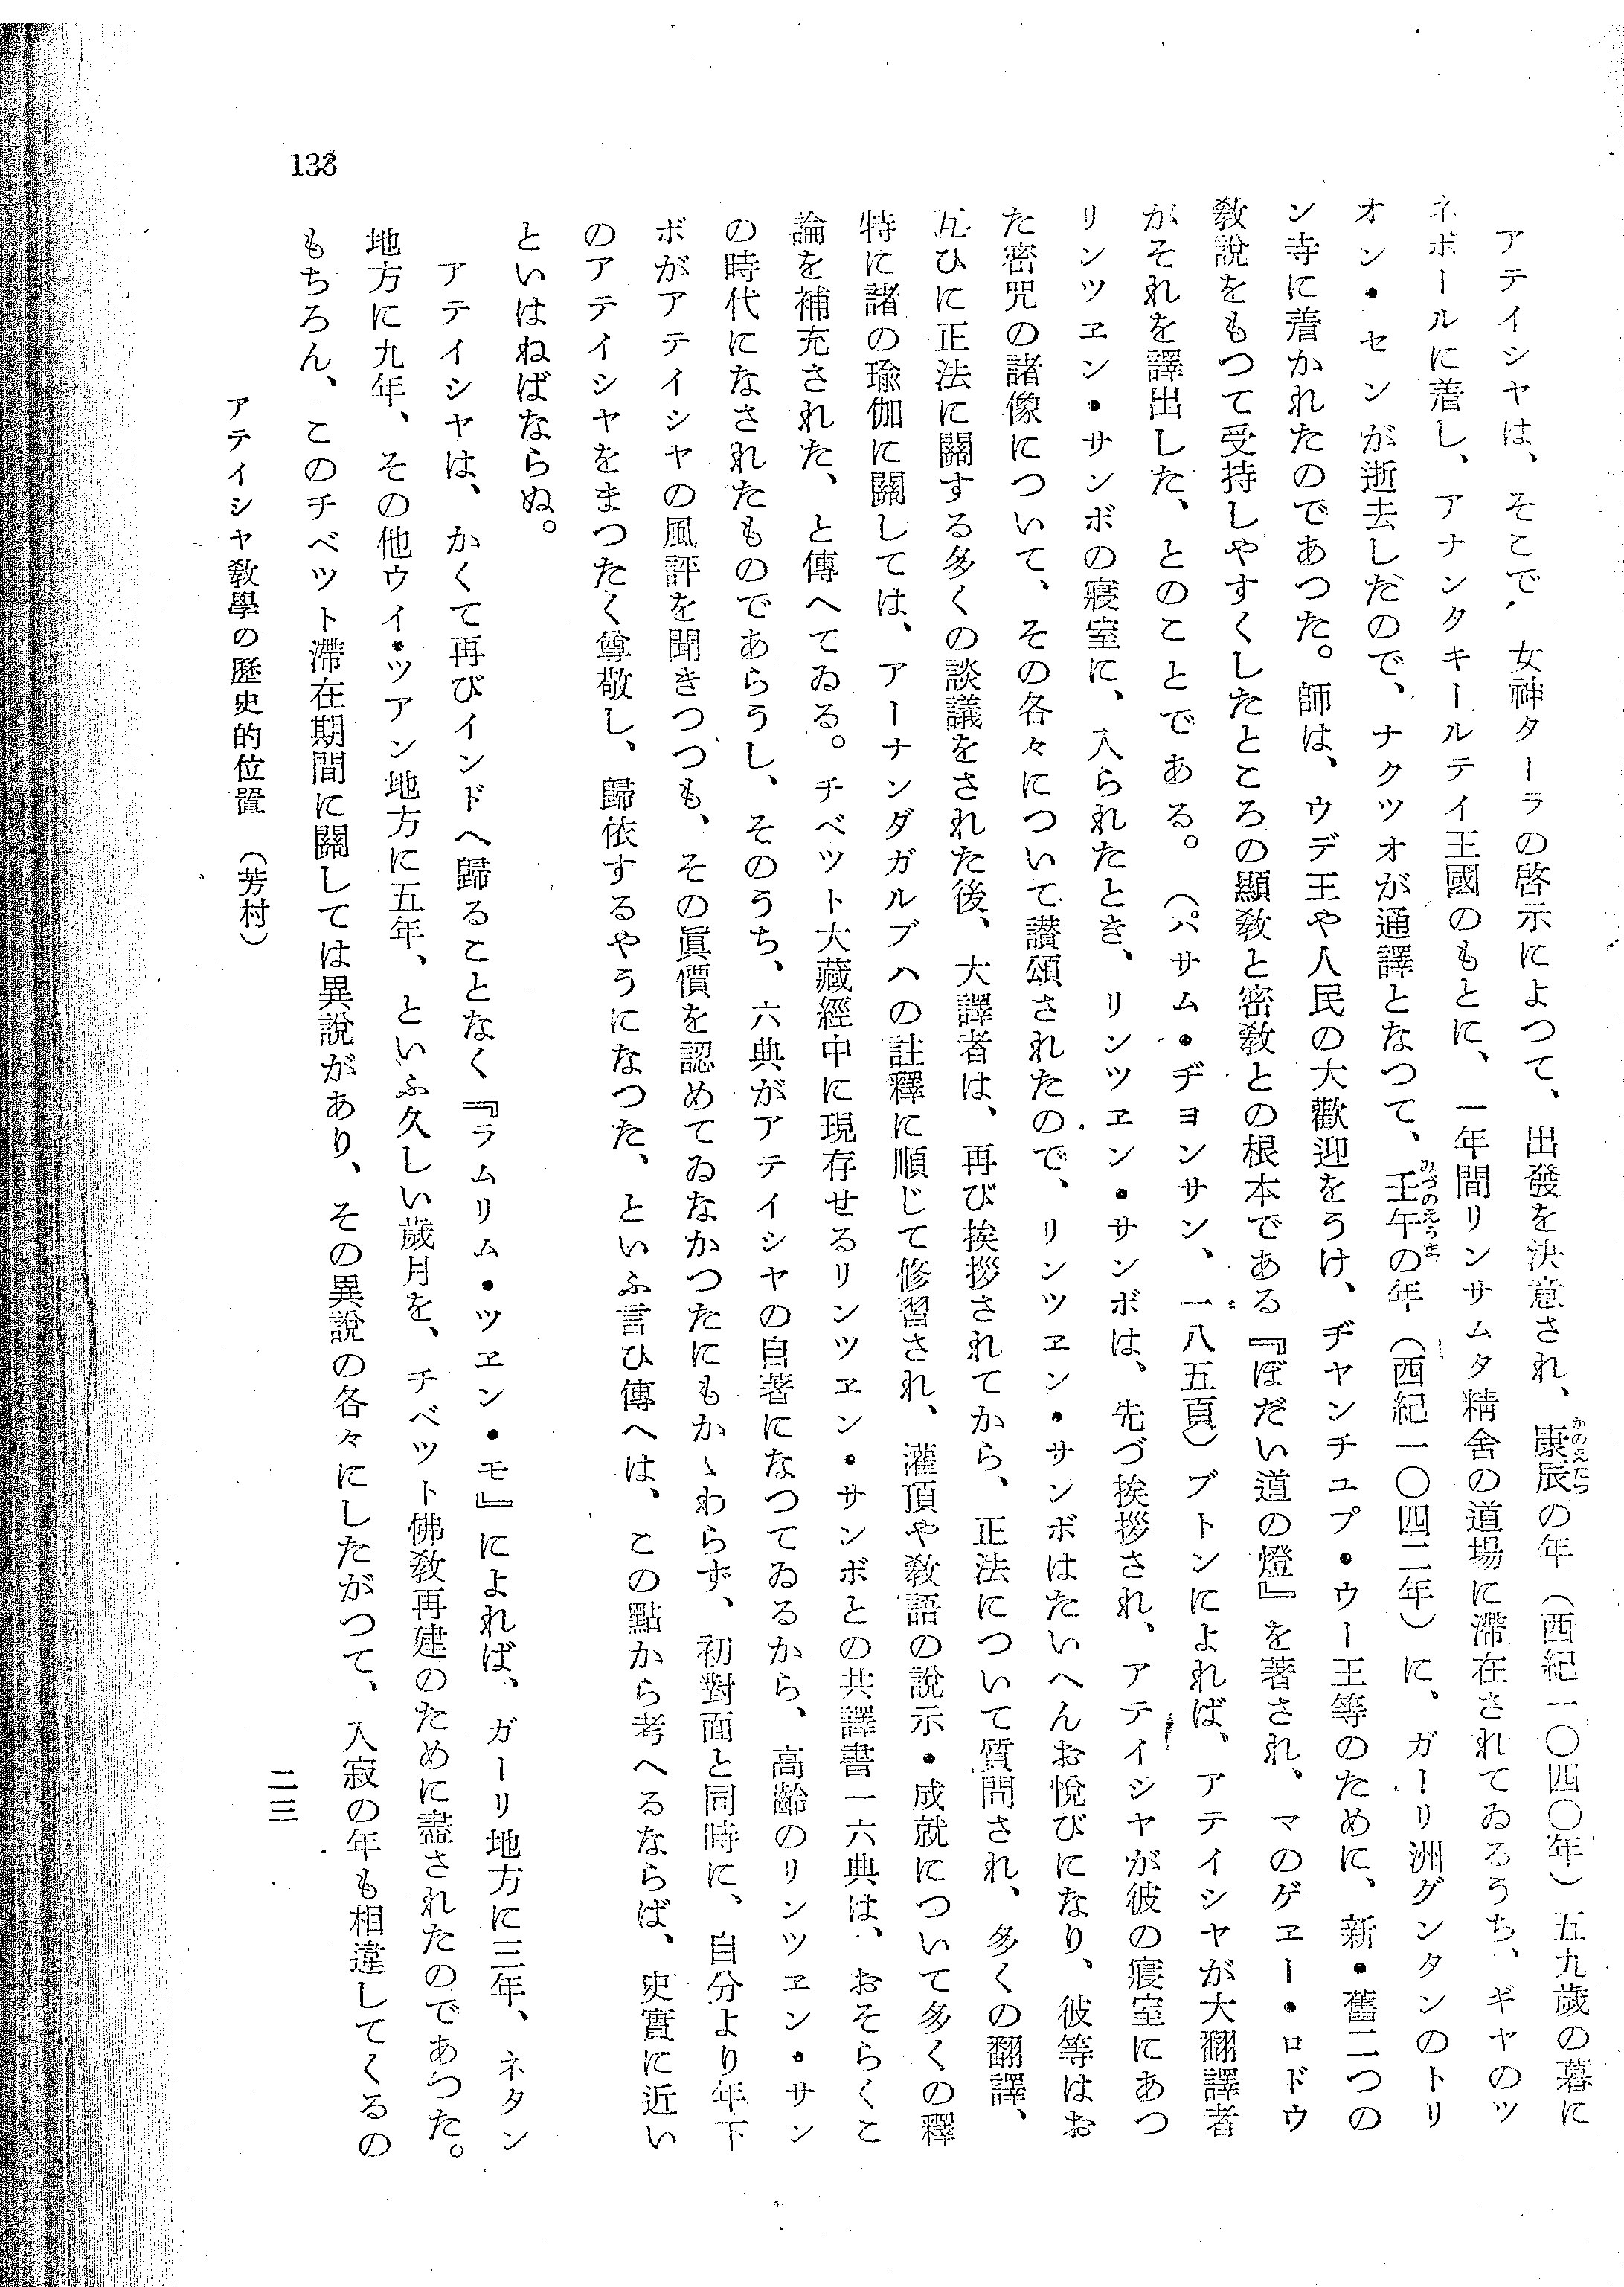 アテイシヤは、そこで、女神ターラの啓示によつて、出發を決意され、康辰の年（西紀一〇四〇年）五九歳の暮に
かのえたつ
ネポールに着し、アナンタキールテイ王國のもとに、一年間リンサムタ精舍の道場に滯在されてゐるうち、ギヤのツ
オン・センが逝去したので、ナクツオが通譯となつて、壬午の年（西紀一〇四二年）に、ガーリ洲グンタンのトリ
みづのえうま
ン寺に着かれたのであつた。師は、ウデ王や人民の大歡迎をうけ、ヂヤンチユプ・ウー王等のために、新・舊二つの
敎說をもつて受持しやすくしたところの顯敎と密敎との根本である『ぼだい道の燈』を著され、マのゲヱー・ロドウ
がそれを譯出した、とのことである。（パサム・ヂヨンサン、一八五頁）ブトンによれば、アテイシヤが大翻譯者
リンツヱン・サンボの寢室に、入られたとき、リンツヱン・サンボは、先づ挨拶され、アテイシヤが彼の寢室にあつ
た密咒の諸像について、その各々について讃頌されたので、リンツヱン・サンボはたいへんお悅びになり、彼等はお
互ひに正法に關する多くの談議をされた後、大譯者は、再び挨拶されてから、正法について質問され、多くの翻譯、
特に諸の瑜伽に關しては、アーナンダガルブハの註釋に順じて修習され、灌頂や敎語の說示・成就について多くの釋
論を補充された、と傳へてゐる。チベツト大藏經中に現存せるリンツヱン・サンボとの共譯書一六典は、おそらくこ
の時代になされたものであらうし、そのうち、六典がアテイシヤの自著になつてゐるから、高齡のリンツヱン・サン
ボがアテイシヤの風評を聞きつつも、その眞價を認めてゐなかつたにもかゝわらず、初對面と同時に、自分より年下
のアテイシヤをまつたく尊敬し、歸依するやうになつた、といふ言ひ傳へは、この點から考へるならば、史實に近い
といはねばならぬ。
アテイシヤは、かくて再びインドへ歸ることなく『ラムリム・ツヱン・モ』によれば、ガーリ地方に三年、ネタン
地方に九年、その他ウイ・ツアン地方に五年、といふ久しい歲月を、チベツト佛敎再建のために盡されたのであつた。
もちろん、このチベツト滯在期間に關しては異說があり、その異說の各々にしたがつて、入寂の年も相違してくるの
アテイシヤ敎學の歷史的位置（芳村）
二三